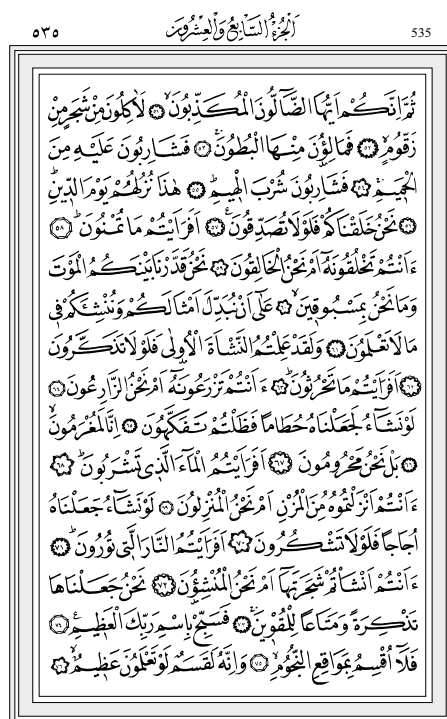 ٥٣٥ اَلْجُزْءُ السَّابِعُ وَالْعِشْرُونَ 535
ثُمَّ اِنَّكُمْ اَيُّهَا الضَّٓالُّونَ الْمُكَذِّبُونَۙ ﴿٥١﴾ لَاٰكِلُونَ مِنْ شَجَرٍ مِنْ
زَقُّومٍۙ ﴿٥٢﴾ فَمَالِؤُ۫نَ مِنْهَا الْبُطُونَۚ ﴿٥٣﴾ فَشَارِبُونَ عَلَيْهِ مِنَ
الْحَم۪يمِۚ ﴿٥٤﴾ فَشَارِبُونَ شُرْبَ الْه۪يمِۜ ﴿٥٥﴾ هٰذَا نُزُلُهُمْ يَوْمَ الدّ۪ينِۜ
﴿٥٦﴾ نَحْنُ خَلَقْنَاكُمْ فَلَوْلَا تُصَدِّقُونَ ﴿٥٧﴾ اَفَرَاَيْتُمْ مَا تُمْنُونَۜ ﴿٥٨﴾
ءَاَنْتُمْ تَخْلُقُونَهُٓ اَمْ نَحْنُ الْخَالِقُونَ ﴿٥٩﴾ نَحْنُ قَدَّرْنَا بَيْنَكُمُ الْمَوْتَ
وَمَا نَحْنُ بِمَسْبُوق۪ينَۙ ﴿٦٠﴾ عَلٰٓى اَنْ نُبَدِّلَ اَمْثَالَكُمْ وَنُنْشِئَكُمْ ف۪ي
مَا لَا تَعْلَمُونَ ﴿٦١﴾ وَلَقَدْ عَلِمْتُمُ النَّشْاَةَ الْاُو۫لٰى فَلَوْلَا تَذَكَّرُونَ
﴿٦٢﴾ اَفَرَاَيْتُمْ مَا تَحْرُثُونَۜ ﴿٦٣﴾ ءَاَنْتُمْ تَزْرَعُونَهُٓ اَمْ نَحْنُ الزَّارِعُونَ ﴿٦٤﴾
لَوْ نَشَٓاءُ لَجَعَلْنَاهُ حُطَاماً فَظَلْتُمْ تَفَكَّهُونَ ﴿٦٥﴾ اِنَّا لَمُغْرَمُونَۙ
﴿٦٦﴾ بَلْ نَحْنُ مَحْرُومُونَ ﴿٦٧﴾ اَفَرَاَيْتُمُ الْمَٓاءَ الَّذ۪ي تَشْرَبُونَۜ ﴿٦٨﴾
ءَاَنْتُمْ اَنْزَلْتُمُوهُ مِنَ الْمُزْنِ اَمْ نَحْنُ الْمُنْزِلُونَ ﴿٦٩﴾ لَوْ نَشَٓاءُ جَعَلْنَاهُ
اُجَاجاً فَلَوْلَا تَشْكُرُونَ ﴿٧٠﴾ اَفَرَاَيْتُمُ النَّارَ الَّت۪ي تُورُونَۜ ﴿٧١﴾
ءَاَنْتُمْ اَنْشَأْتُمْ شَجَرَتَهَٓا اَمْ نَحْنُ الْمُنْشِؤُ۫نَ ﴿٧٢﴾ نَحْنُ جَعَلْنَاهَا
تَذْكِرَةً وَمَتَاعاً لِلْمُقْو۪ينَۚ ﴿٧٣﴾ فَسَبِّحْ بِاسْمِ رَبِّكَ الْعَظ۪يمِ۟ ﴿٧٤﴾
فَلَٓا اُقْسِمُ بِمَوَاقِعِ النُّجُومِۙ ﴿٧٥﴾ وَاِنَّهُ لَقَسَمٌ لَوْ تَعْلَمُونَ عَظ۪يمٌۙ ﴿٧٦﴾